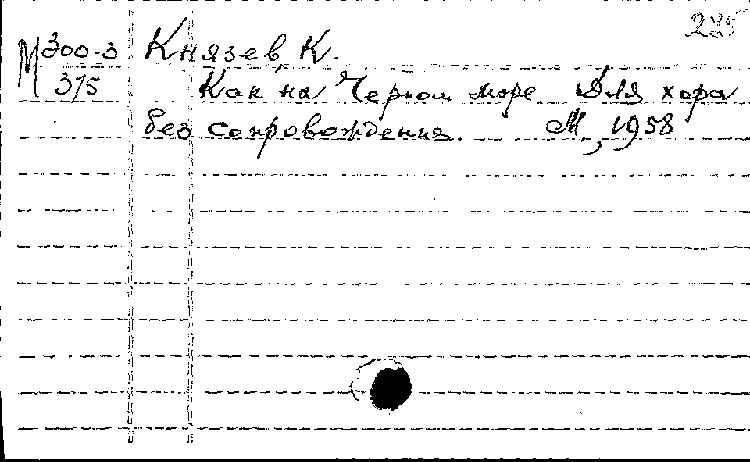 285
М 300-3 Князев, К.
375 Как на Черном море Для хора
без сопровождения. М., 1958